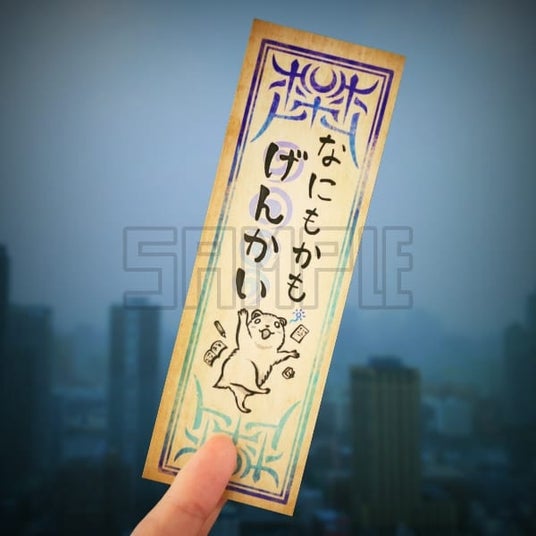 なにもかも
げんかい
SAMPLE